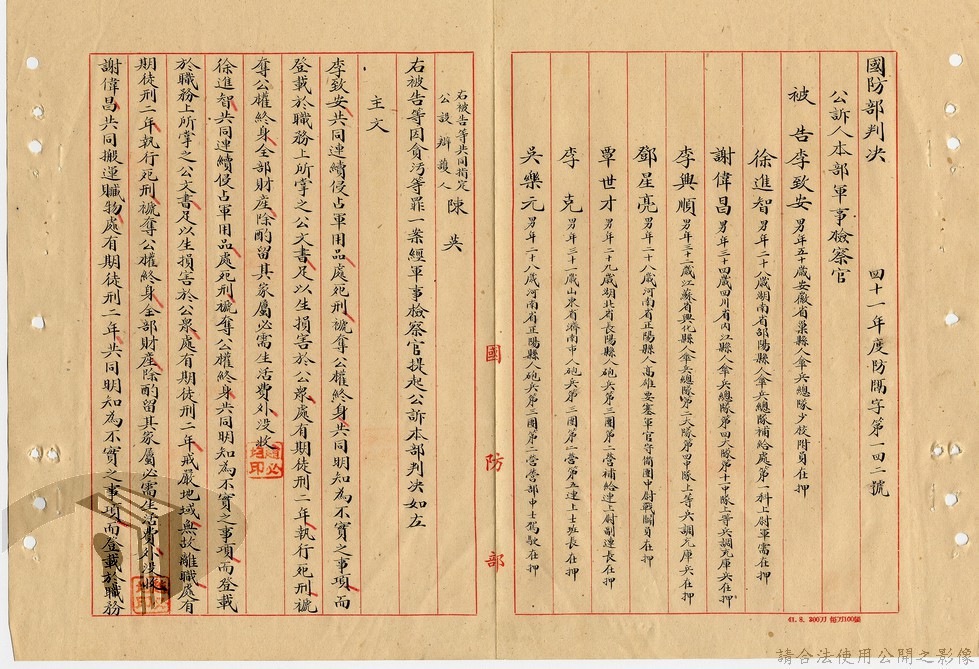 國防部判决　四十一年度防隅字第一四二號
公訴人本部軍事檢察官
被告李致安男年五十歲安徽省巢縣人傘兵總隊少校附員在押
徐進智男年二十八歲湖南省邵陽縣人傘兵總隊補給處第一科上尉軍需在押
謝偉昌男年三十四歲四川省內江縣人傘兵總隊第四大隊第十一中隊上等兵調充庫兵在押
李興順男年三十二歲江蘇省興化縣人傘兵總隊第二大隊第四中隊上等兵調充庫兵在押
鄧星亮男年二十八歲河南省正陽縣人高雄要塞軍官守備團中尉戰鬬員在押
覃世才男年二十九歲湖北省長陽縣人砲兵第三團第二營補給連上尉副連長在押
李克男年三十一歲山東省濟南市人砲兵第三團第二營第五連上士班長在押
吳樂元男年二十八歲河南省正陽縣人砲兵第三團第二營營部中士駕駛在押
國防部
41. 8. 200刀 每刀100張
右被告等共同指定
公設辯護人陳英
右被告等因貪污等罪一案經軍事檢察官提起公訴本部判决如左
主文
李致安共同連續侵占軍用品處死刑褫奪公權終身共同明知為不實之事項而
登載於職務上所掌之公文書足以生損害於公衆處有期徒刑二年執行死刑褫
奪公權終身全部財產除酌留其家屬必需生活費外没收
徐進智共同連續侵占軍用品處死刑褫奪公權終身共同明知為不實之事項而登載
於職務上所掌之公文書足以生損害於公衆處有期徒刑二年戒嚴地域無故離職處有
期徒刑二年執行死刑褫奪公權終身全部財產除酌留其家屬必需生活費外没收
謝偉昌共同搬運贓物處有期徒刑二年共同明知為不實之事項而登載於職務
請合法使用公開之影像